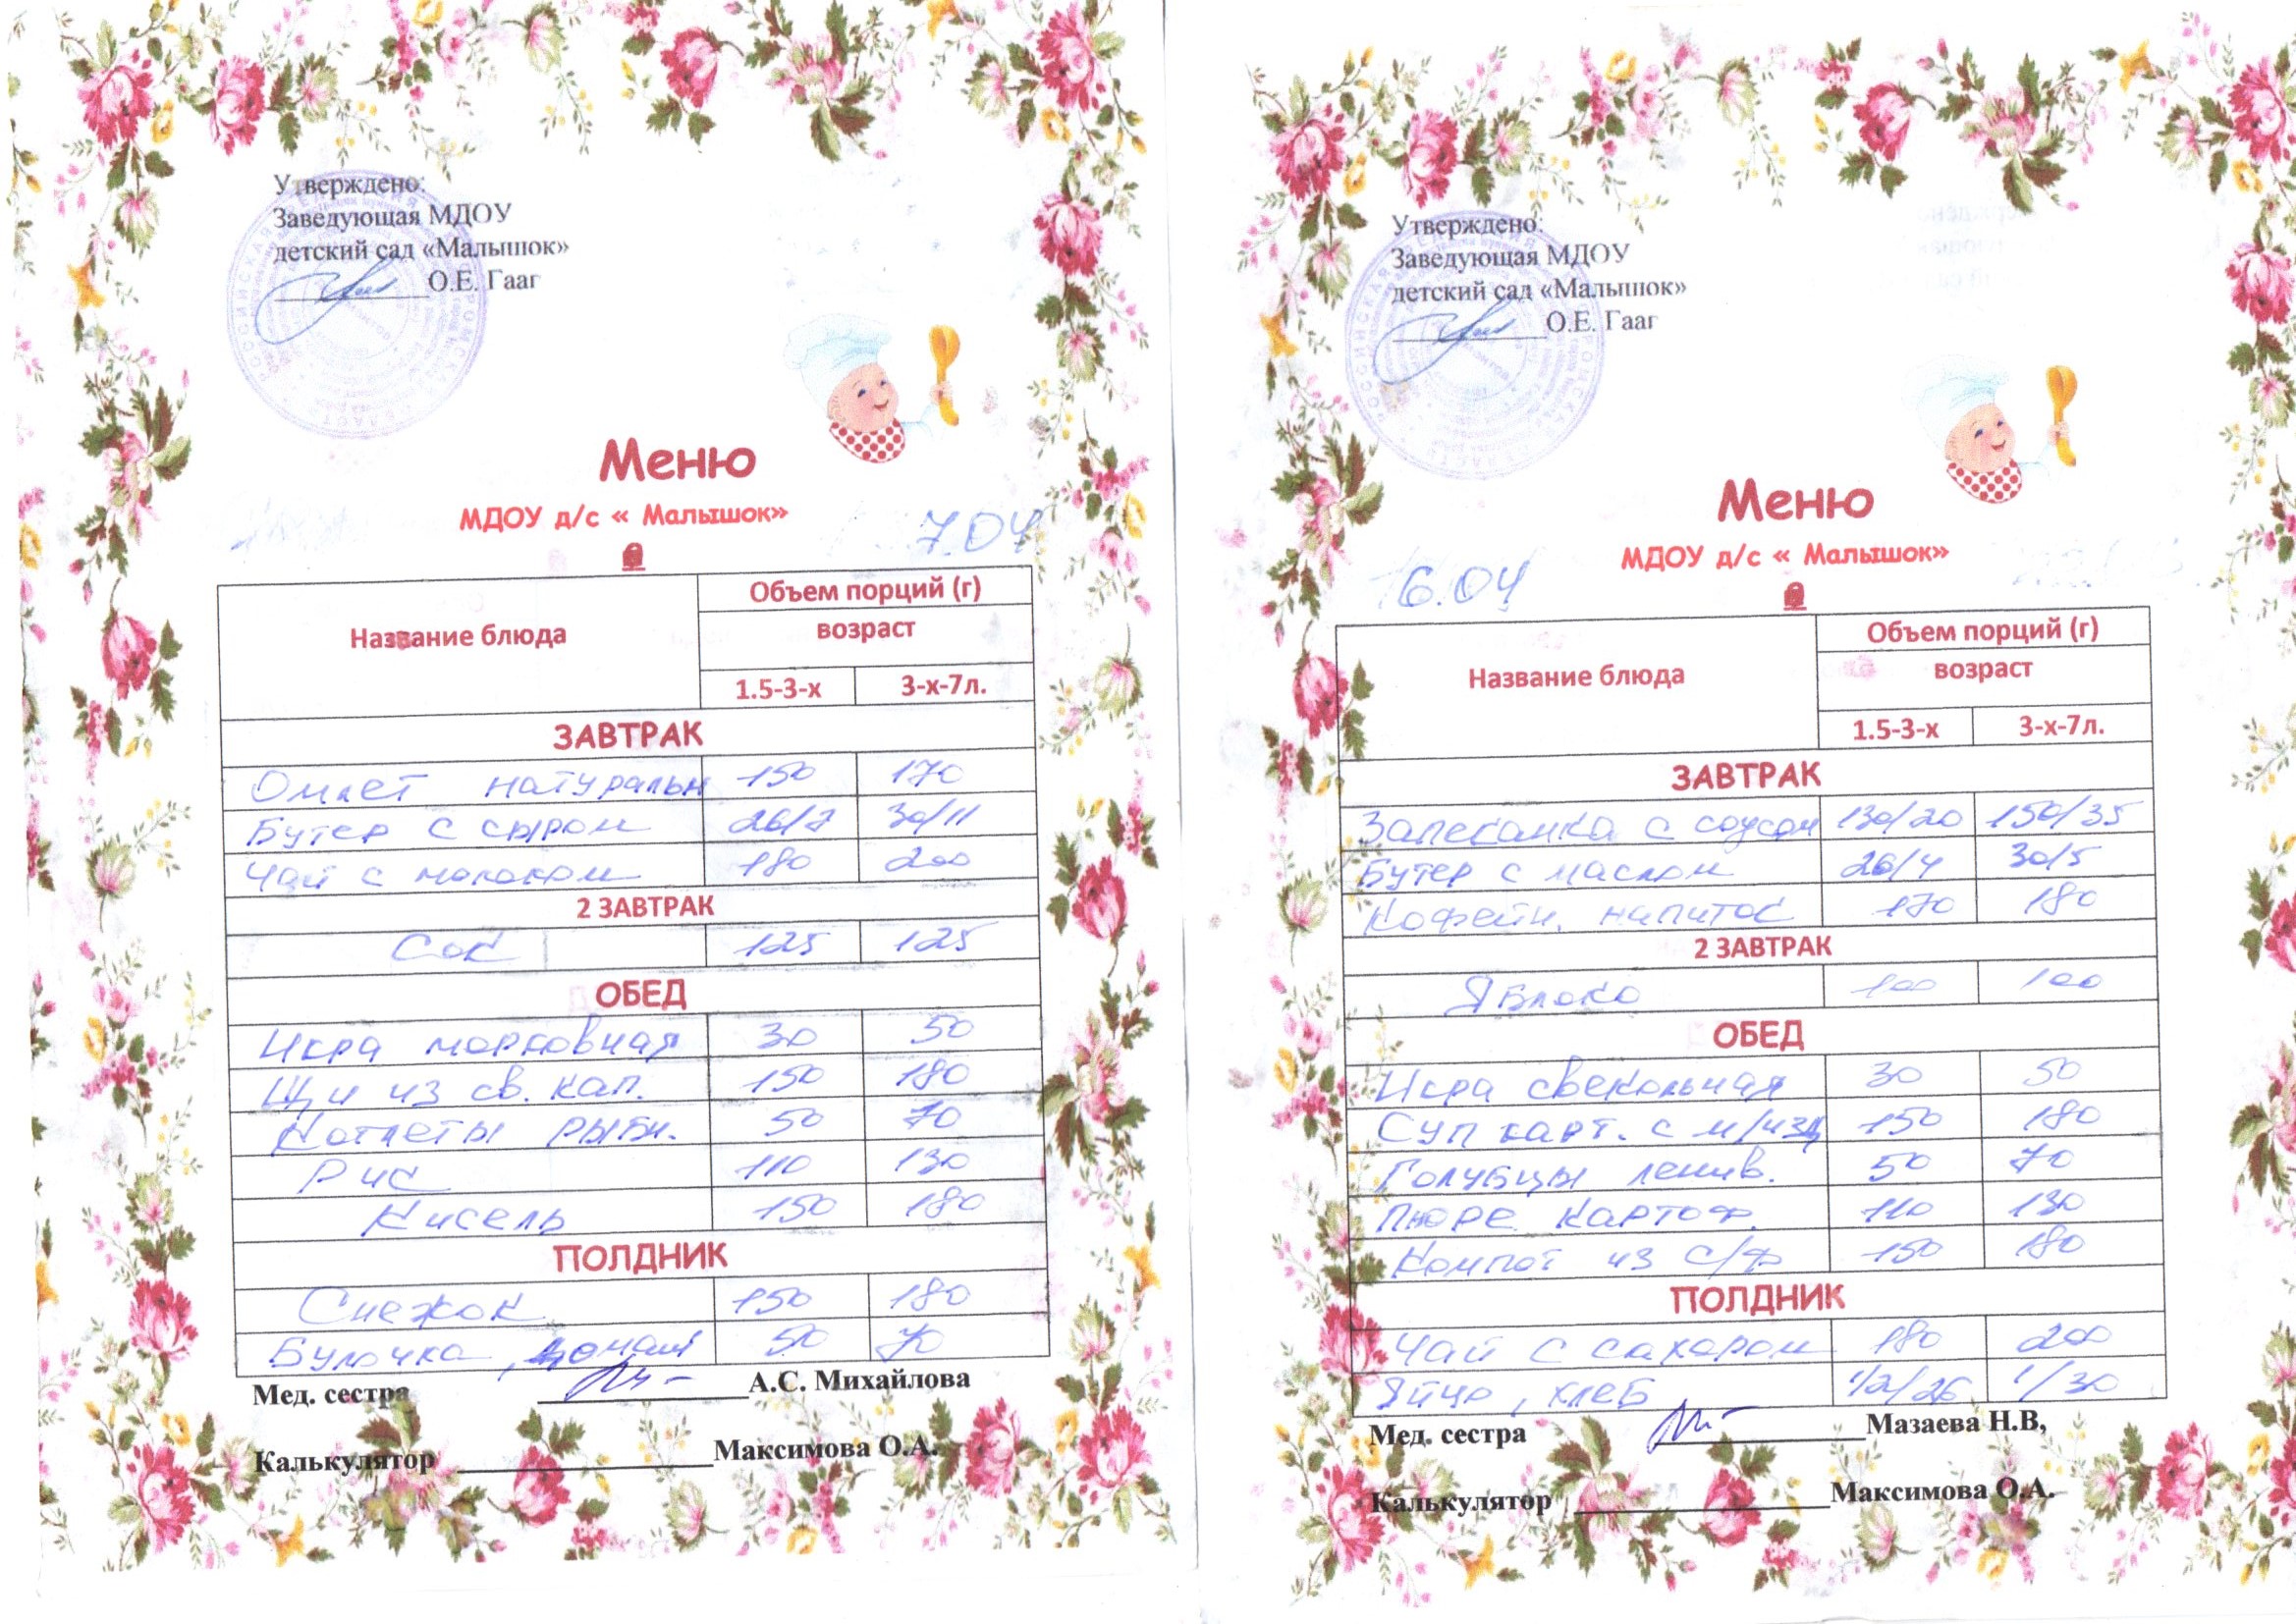 Утверждено:
Заведующая МДОУ
детский сад «Малышок»
О.Е. Гааг
Меню
МДОУ д/с « Малышок»
7.04
Название блюда
Объем порций (г)
возраст
1.5-3-х 3-х-7л.
ЗАВТРАК
Омлет натуральн 150 170
Бутер с сыром 26/7 30/11
Чай с молоком 180 200
2 ЗАВТРАК
Сок 125 125
ОБЕД
Икра морковная 30 50
Щи из св. кап. 150 180
Котлеты рыбн. 50 70
Рис 110 130
Кисель 150 180
ПОЛДНИК
Снежок 150 180
Булочка домаш 50 70
Мед. сестра А.С. Михайлова
Калькулятор Максимова О.А.
Утверждено:
Заведующая МДОУ
детский сад «Малышок»
О.Е. Гааг
Меню
МДОУ д/с « Малышок»
6.04
Название блюда
Объем порций (г)
возраст
1.5-3-х 3-х-7л.
ЗАВТРАК
Запеканка с соусом 130/20 150/35
Бутер с маслом 26/4 30/5
Кофейн. напиток 170 180
2 ЗАВТРАК
Яблоко 100 100
ОБЕД
Икра свекольная 30 50
Суп карт. с м/изд 150 180
Голубцы ленив. 50 70
Пюре картоф. 110 130
Компот из с/ф 150 180
ПОЛДНИК
Чай с сахаром 180 200
Яйцо, хлеб 1/2/26 1/30
Мед. сестра Мазаева Н.В,
Калькулятор Максимова О.А.